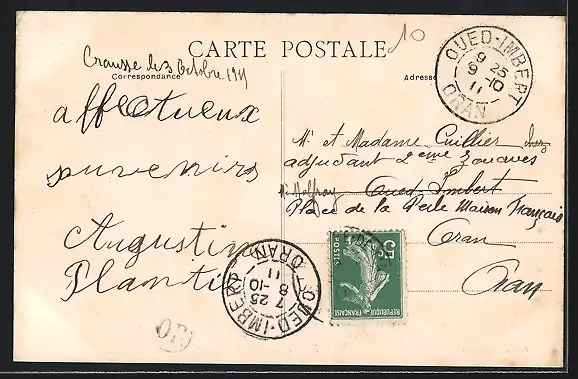 10
CARTE POSTALE
Crausse le 3 Octobre 1911
Correspondance
Adresse
OUED-IMBERT
9 25
9 -10
11
ORAN
affectueux
souvenirs
Augustin
Plantié
Mr et Madame Cuillier chez
adjudant 2eme zouaves
Mr Maffray Oued Imbert
Place de la Perle Maison Français
Oran
Oran
5c
POSTES
REPUBLIQUE FRANÇAISE
OUED-IMBERT
7 25
8 -10
11
ORAN
OR